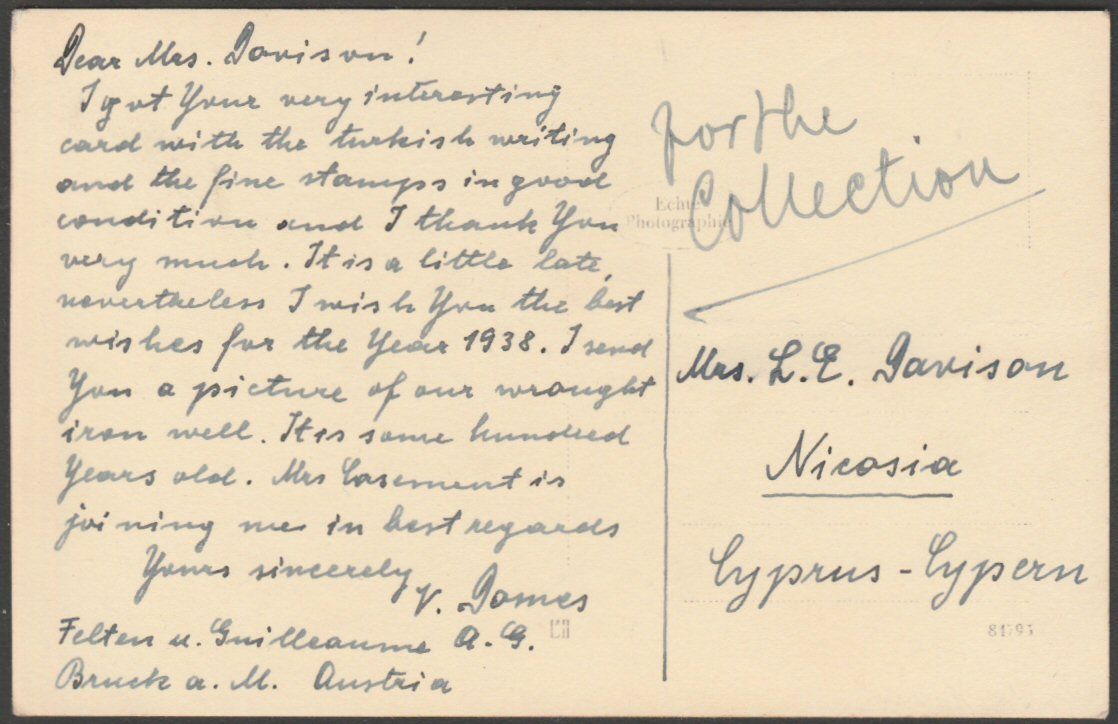 Dear Mrs. Davison!
I got Your very interesting
card with the turkish writing
and the fine stamps in good
condition and I thank You
very much. It is a little late,
nevertheless I wish You the best
wishes for the Year 1938. I send
You a picture of our wrought
iron well. It is some hundred
Years old. Mrs Casement is
joining me in best regards
Yours sincerely
V. Domes
Felten u. Guilleaume A.G.
Bruck a. M. Austria
for the
Collection
Echte
Photographie
Mrs. L. E. Davison
Nicosia
Cyprus - Cypern